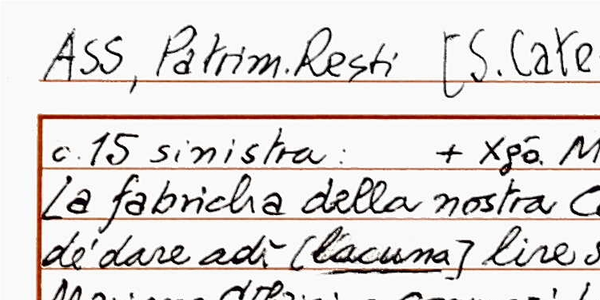 ASS, Patrim. Resti [S. Cate
c. 15 sinistra: + Xgõ. M
La fabricha della nostra C
de' dare adì [lacuna] lire s